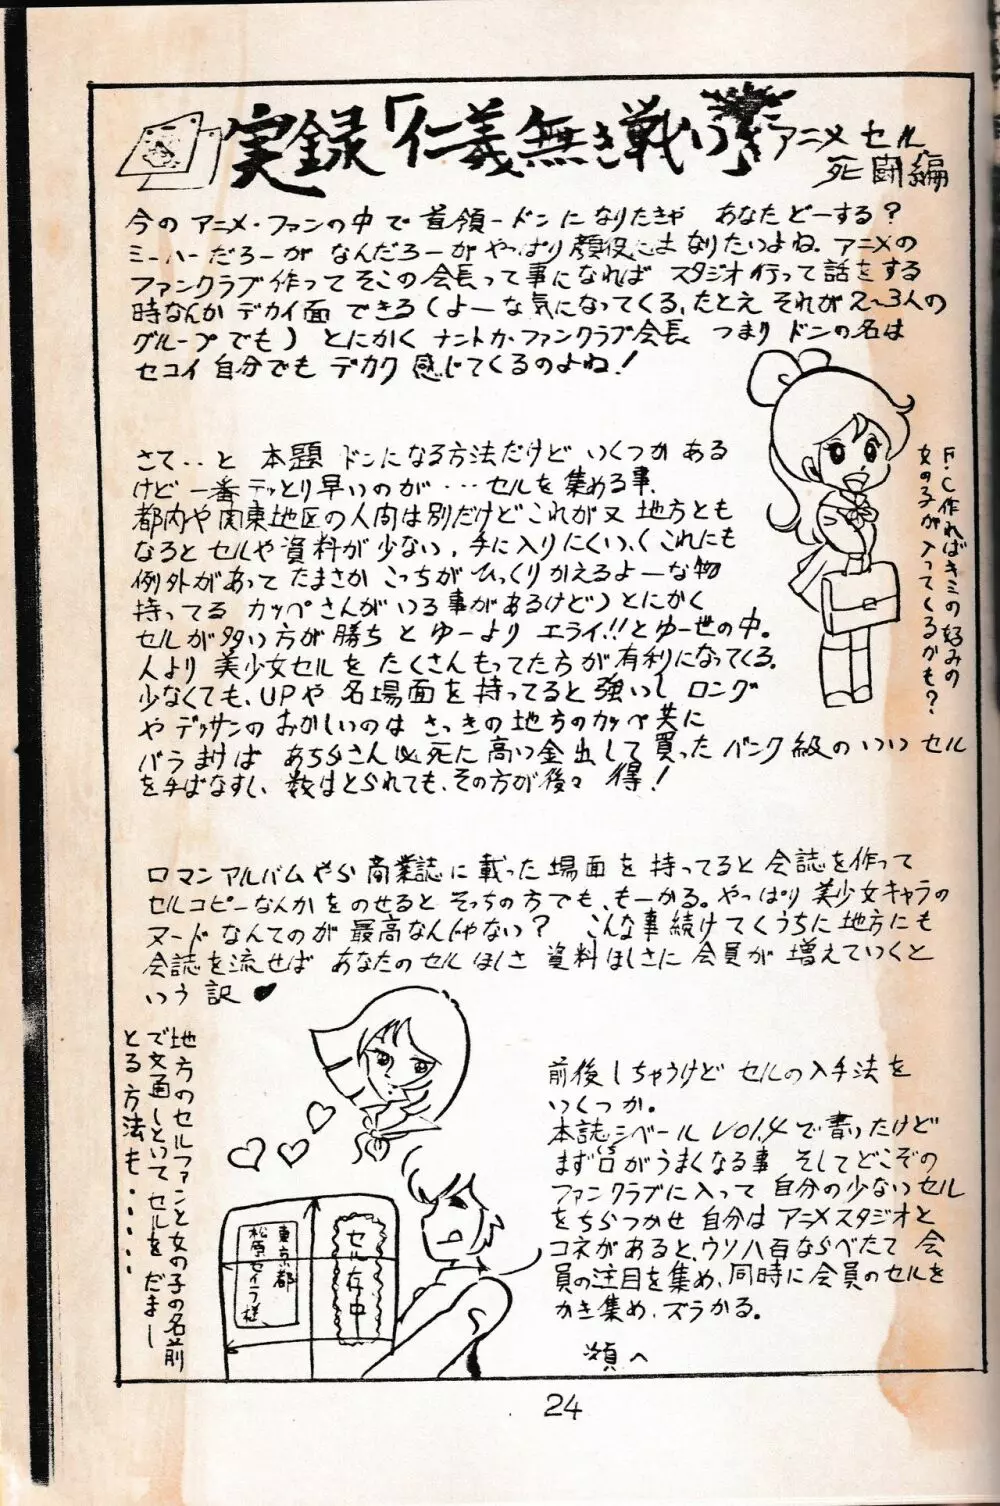 実録「仁義無き戦い」
アニメセル
死闘編
今のアニメ・ファンの中で首領ードンになりたきゃ あなたどーする?
ミーハーだろーがなんだろーがやっぱり顔役にはなりたいよね。アニメの
ファンクラブ作ってそこの会長って事になれば スタジオ行って話をする
時なんかデカイ面できる(よーな気になってくる、たとえそれが2〜3人の
グループでも)とにかくナントカ・ファンクラブ会長 つまりドンの名は
セコイ自分でもデカク感じてくるのよね!
F・C作ればキミの好みの
女の子が入ってくるかも?
さて‥と 本題 ドンになる方法だけど いくつかある
けど一番テットリ早いのが・・・セルを集める事、
都内や関東地区の人間は別だけどこれが又地方とも
なるとセルや資料が少ない、手に入りにくい、(これにも
例外があってたまさかこっちがひっくりかえるよーな物
持ってるカッペさんがいる事があるけど)とにかく
セルが多い方が勝ちとゆーよりエライ!!とゆー世の中。
人より美少女セルをたくさんもってた方が有利になってくる。
少なくても、UPや名場面を持ってると強いし ロング
やデッサンのおかしいのはさっきの地方のカッペ共に
バラまけば あちらさん必死に高い金出して買ったバンク級のいいセル
を手ばなすし、数はとられても、その方が後々 得!
ロマンアルバムやら商業誌に載った場面を持ってると会誌を作って
セルコピーなんかをのせるとそっちの方でも、もーかる。やっぱり美少女キャラの
ヌードなんてのが最高なんじゃない? こんな事続けてくうちに地方にも
会誌を流せば あなたのセルほしさ 資料ほしさに会員が増えていくと
いう訳♥
地方のセルファンと女の子の名前
で文通しといてセルをだまし
とる方法も・・・・・
東京都
松原セイラ様
セル在中
前後しちゃうけど セルの入手法を
いくつか。
本誌シベールVol.4で書ったけど
まず口がうまくなる事 そしてどこぞの
ファンクラブに入って自分の少ないセル
をちらつかせ 自分はアニメスタジオと
コネがあると、ウソ八百ならべたて 会
員の注目を集め、同時に会員のセルを
かき集め、ズラかる。
次頁へ
24